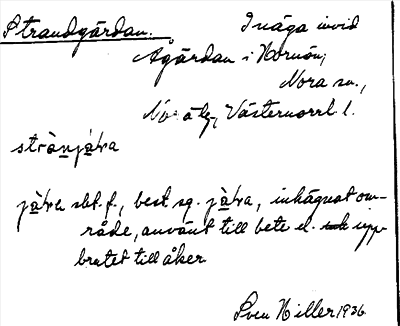 Strandgärdan. Inäga invid
Ågärdan i Hornön,
Nora sn.,
Västernorrl. l.
strànjà̱ɽa
jà̱ɽa sbt. f., best. sg. jà̱ɽa, inhägnat om-
råde, använt till bete el. upp-
brutet till åker
Sven Hiller 1936